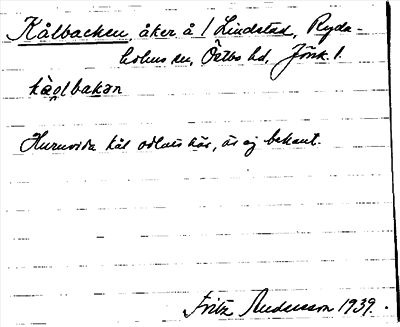 Kålbacken, åker å 1 Lindstad, Ryda-
holms sn, Östbo hd, Jönk. l.
kålbakən
Huruvida kål odlats här, är ej bekant.
Fritz Andersson 1939.